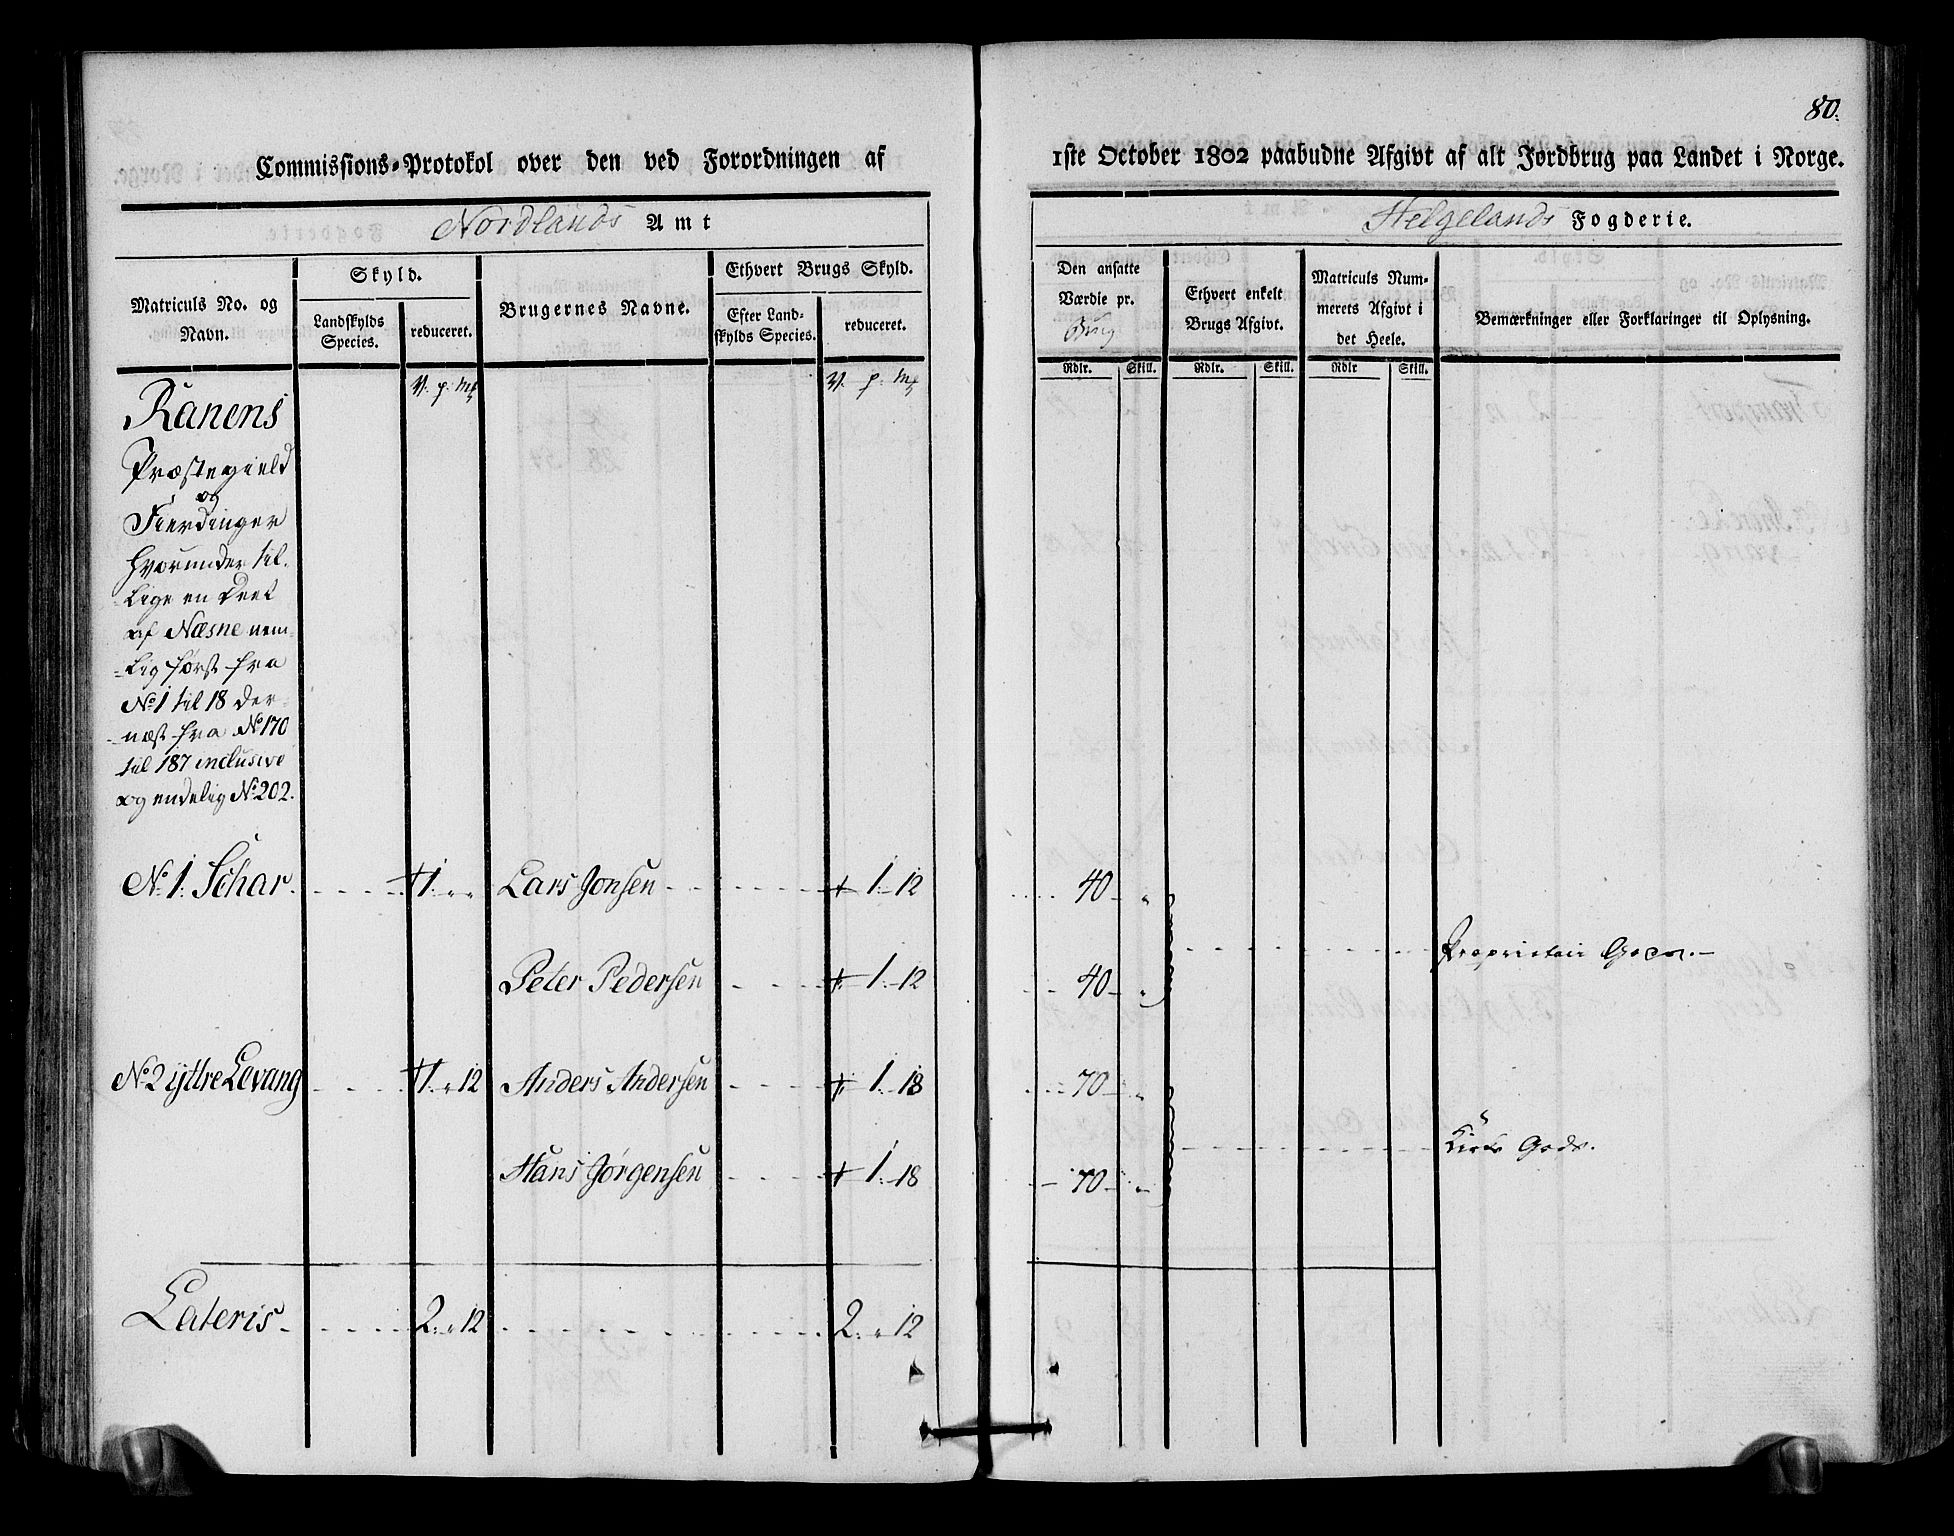 80.
Commissions-Protokol over den ved Forordningen af
1ste October 1802 paabudne Afgivt af alt Jordbrug paa Landet i Norge.
Nordlands Amt
Helgelands Fogderie.
Matriculs No. og Navn.
Skyld.
Landskylds Species.
reduceret.
Brugernes Navne.
Ethvert Brugs Skyld.
Efter Landskylds Species.
reduceret.
Den ansatte Værdie pr. Brug
Ethvert enkelt Brugs Afgivt.
Matriculs Nummerets Afgivt i det Heele.
Bemærkninger eller Forklaringer til Oplysning.
Rdlr. Skill. Rdlr. Skill. Rdlr Skill.
V. p: Mk V. p: Mk
Ranens
Præstegield
og
Fierdinger
hvorunder til-
lige en Deel
af Næsne nem-
lig først fra
No 1 til 18 der-
næst fra No 170
til 187 inclusive
og endelig No 202.
No 1. Schar. 1. " " Lars Jonsen 1. 12 40 "
Proprietair Gods.
Peter Pedersen 1. 12 40 "
No 2 yttre Levang 1. " 12 Anders Andersen 1. 18 70 "
Kirke Gods.
Hans Jørgensen 1. 18 70 "
Lateris 2. " 12 2. " 12